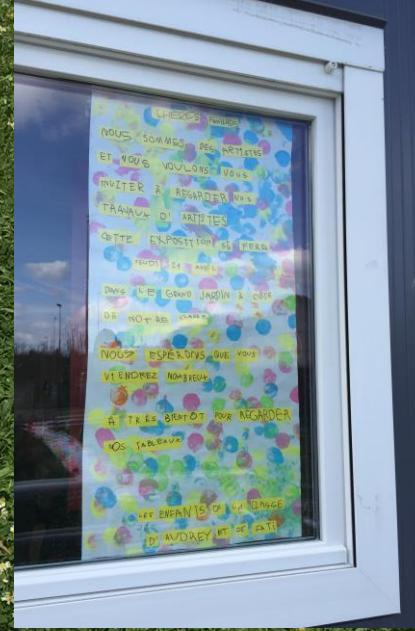 CHERES FAMILLES
NOUS SOMMES DES ARTISTES
ET NOUS VOULONS VOUS
INVITER À REGARDER NOS
TRAVAUX D'ARTISTES
CETTE EXPOSITION SE FERA
JEUDI 21 AVRIL
DANS LE GRAND JARDIN À CÔTÉ
DE NOTRE CLASSE
NOUS ESPÉRONS QUE VOUS
VIENDREZ NOMBREUX
À TRÈS BIENTÔT POUR REGARDER
NOS TABLEAUX
LES ENFANTS DE LA CLASSE
D'AUDREY ET DE CATI